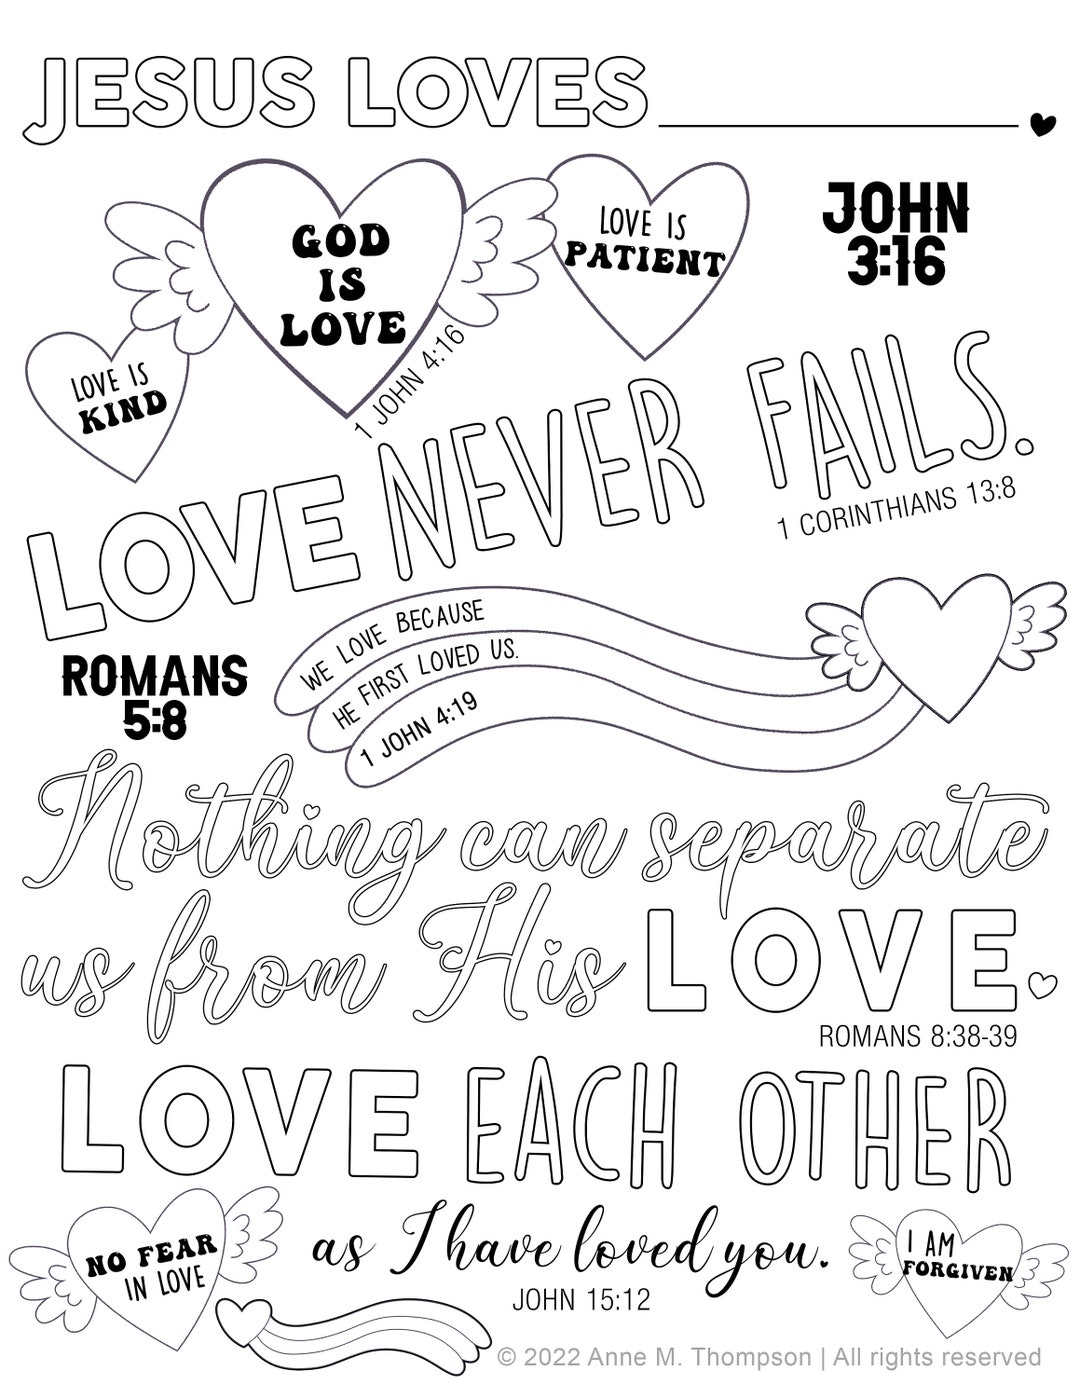 JESUS LOVES
GOD
IS
LOVE
1 JOHN 4:16
LOVE IS
PATIENT
JOHN
3:16
LOVE IS
KIND
LOVE NEVER FAILS.
1 CORINTHIANS 13:8
WE LOVE BECAUSE
HE FIRST LOVED US.
1 JOHN 4:19
ROMANS
5:8
Nothing can separate
us from His LOVE.
ROMANS 8:38-39
LOVE EACH OTHER
as I have loved you.
JOHN 15:12
NO FEAR
IN LOVE
I AM
FORGIVEN
© 2022 Anne M. Thompson | All rights reserved